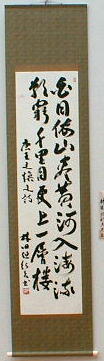 白日依山尽黄河入海流
欲窮千里目更上一層楼
唐王之渙之詩